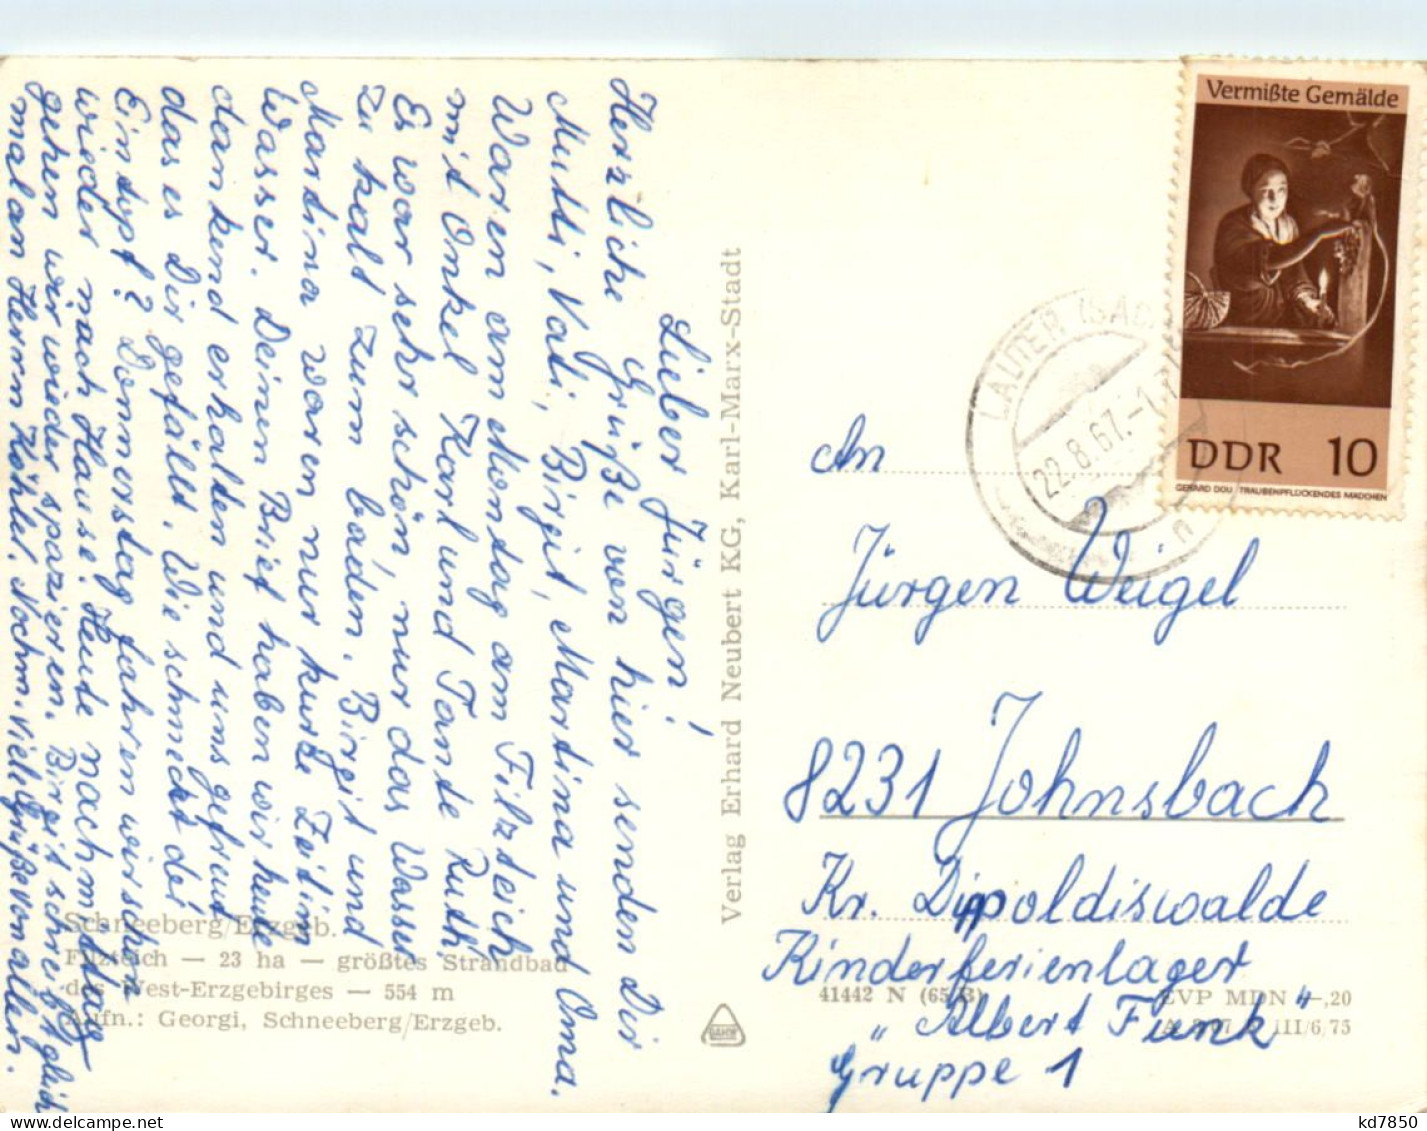 Lieber Jürgen!
Herzliche Grüße von hier senden Dir
Mutti, Vati, Birgit, Martina und Oma.
Waren am Montag am Filzteich
mit Onkel Karl und Tante Ruth.
Es war sehr schön, nur das Wasser
zu kalt zum baden. Birgit und
Martina waren nur kurze Zeit im
Wasser. Deinen Brief haben wir heute
dankend erhalten und uns gefreut
das es Dir gefällt. Wie schmeckt der
Eintopf? Donnerstag fahren wir schon
wieder nach Hause. Heute nachmittag
gehen wir wieder spazieren. Birgit schreibt gleich
mal an Herrn Köhler. Nochm. viele Grüße von allen.
Schneeberg/Erzgeb.
Filzteich — 23 ha — größtes Strandbad
des West-Erzgebirges — 554 m
Aufn.: Georgi, Schneeberg/Erzgeb.
Verlag Erhard Neubert KG, Karl-Marx-Stadt
Vermißte Gemälde
DDR 10
GERARD DOU · TRAUBENPFLÜCKENDES MÄDCHEN
LAUTER (SA
22.8.67.-17
An
Jürgen Weigel
8231 Johnsbach
Kr. Dippoldiswalde
Kinderferienlager
„Albert Funk"
Gruppe 1
41442 N
EVP MDN —,20
III/6/75
kd7850